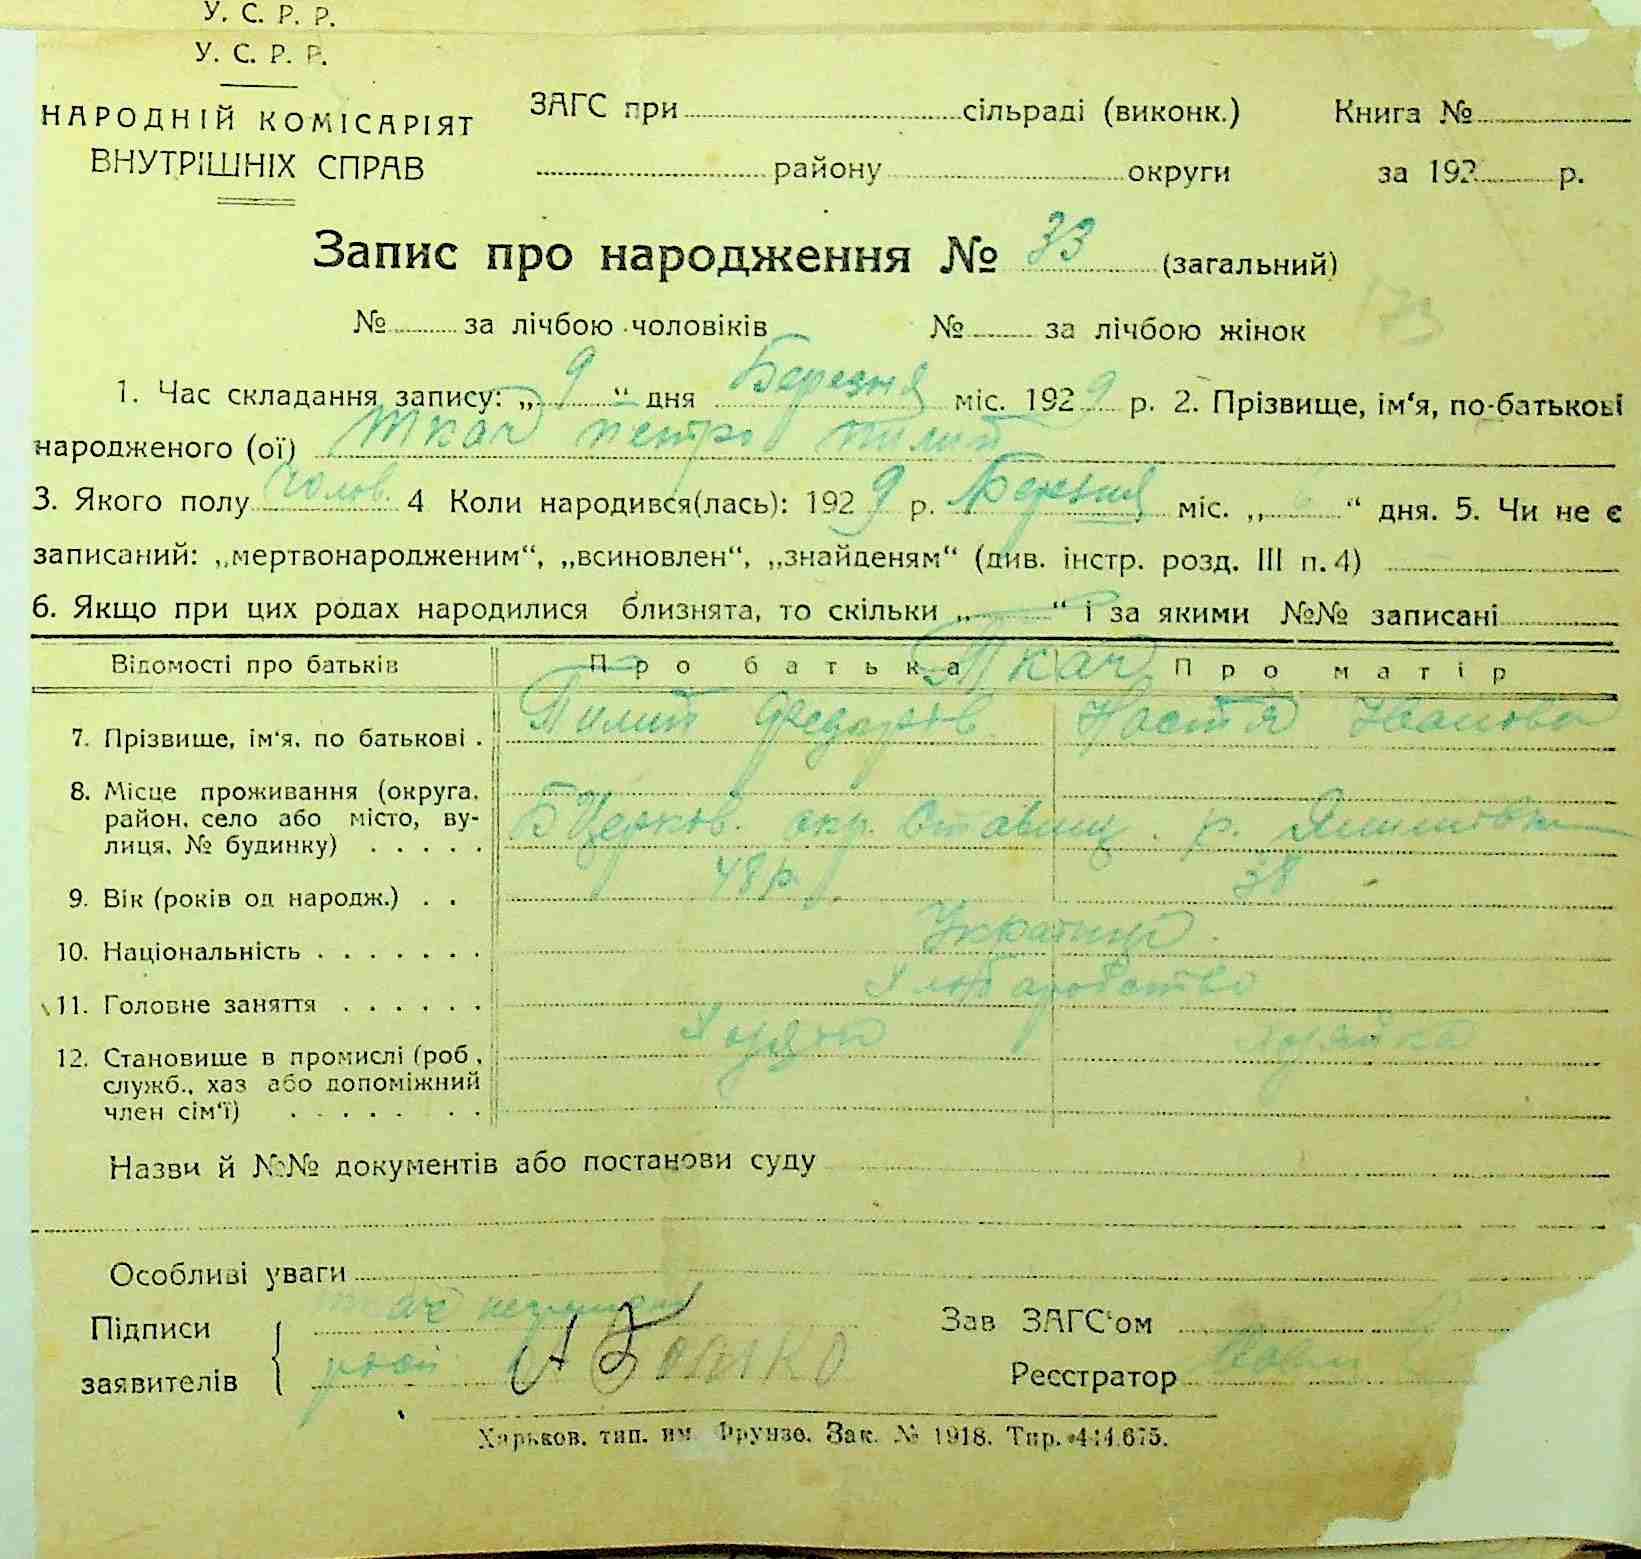 У. С. Р. Р.
У. С. Р. Р.
НАРОДНІЙ КОМІСАРІЯТ
ВНУТРІШНІХ СПРАВ
ЗАГС при сільраді (виконк.)
району округи
Книга №
за 192 р.
Запис про народження № 33 (загальний)
№ за лічбою чоловіків № за лічбою жінок 173
1. Час складання запису: „ 9 “ дня Березня міс. 1929 р. 2. Прізвище, ім‘я, по-батькові
народженого (ої) Ткач Петро Пилип
3. Якого полу чолов. 4 Коли народився(лась): 1929 р. Березня міс. „ 6 “ дня. 5. Чи не є
записаний: „мертвонародженим“, „всиновлен“, „знайденям“ (див. інстр. розд. III п. 4)
6. Якщо при цих родах народилися близнята, то скільки „ “ і за якими №№ записані
Відомості про батьків Про батька Про матір
Ткач
7. Прізвище, ім‘я, по батькові . Пилип Федоров Настя Іванова
8. Місце проживання (округа,
район, село або місто, ву-
лиця, № будинку) . . . . . БЦерков. окр. Ставищ. р.
9. Вік (років од народж.) . . 48 р. 38
10. Національність . . . . . . . Українці
11. Головне заняття . . . . . . Хлібаробство
12. Становище в промислі (роб,
служб., хаз або допоміжний
член сім‘ї) . . . . . . . Хазяїн хазяйка
Назви й №№ документів або постанови суду
Особливі уваги
Підписи
заявителів
Ткач
Зав ЗАГС‘ом
Реєстратор
Харьков. тип. им Фрунзе. Зак. № 1918. Тир. 444.675.